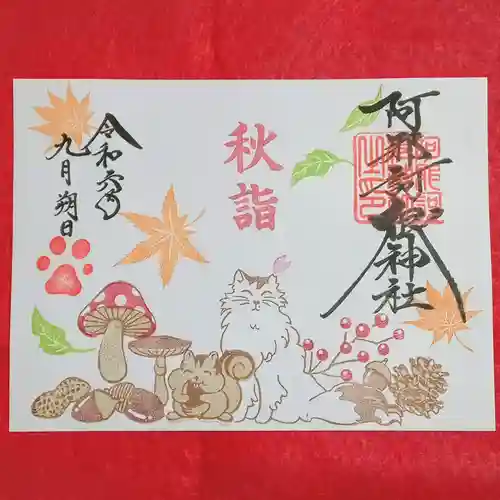 阿那訶根神社
秋詣
令和六年
九月朔日